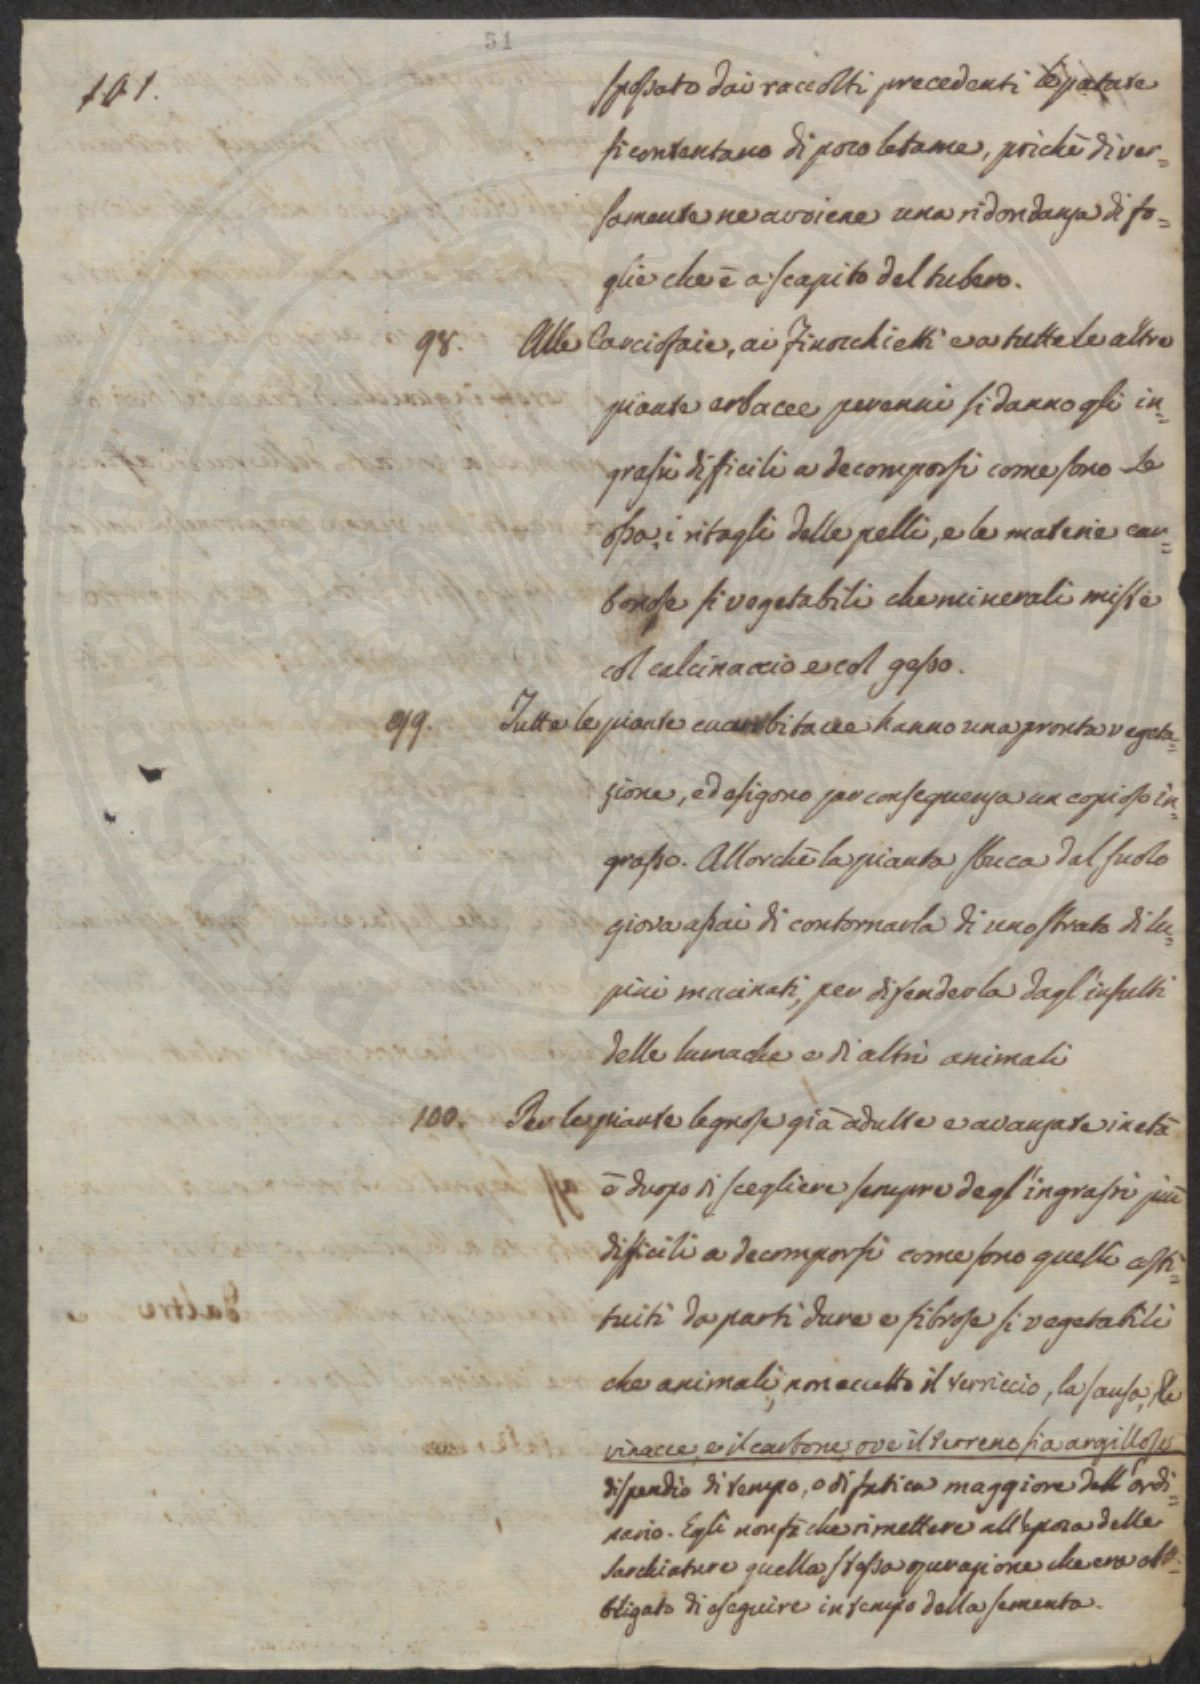 51
101.
spossato dai raccolti precedenti le patate
si contentano di poco letame, poichè diver=
samente ne avviene una ridondanza di fo=
glie che è a scapito del tubero.
98. Alle Carciofaie, ai Finocchietti e a tutte le altre
piante erbacee perenni si danno gli in=
grassi difficili a decomporsi come sono le
ossa, i ritagli delle pelli, e le materie car=
bonose si vegetabili che minerali miste
col calcinaccio e col gesso.
99. Tutte le piante cucurbitacee hanno una pronta vegeta=
zione, ed esigono per conseguenza un copioso in=
grasso. Allorchè la pianta sbuca dal suolo
giova assai di contornarla di uno strato di lu=
pini macinati, per difenderla dagl'insulti
delle lumache e di altri animali
100. Per le piante legnose già adulte e avanzate in età
è duopo di scegliere sempre degl'ingrassi più
difficili a decomporsi come sono quelli costi=
tuiti da parti dure e fibrose si vegetabili
che animali, non eccetto il terriccio, la sansa, le
vinacce, e il carbone, ove il terreno sia argilloso
dispendio di tempo, o di fatica maggiore dell'ordi=
nario. Egli non fà che rimettere all'epoca delle
sarchiature quella stessa operazione che era ob=
bligato di eseguire in tempo della sementa.